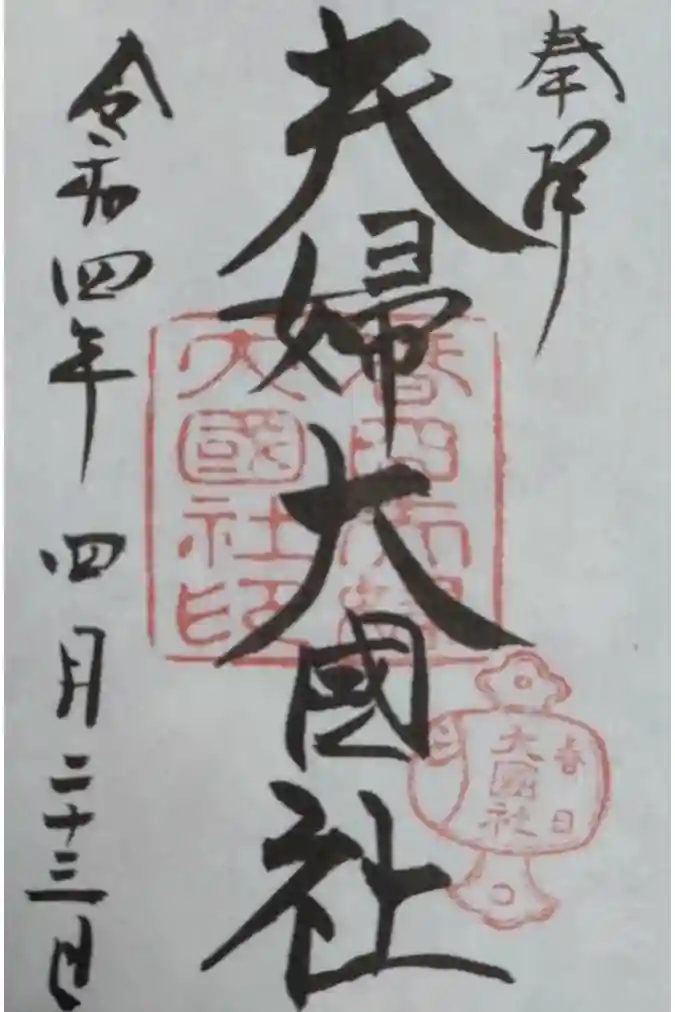 奉拝
夫婦大國社
令和四年 四月二十三日
春日大社
大國社印
春日
大國社